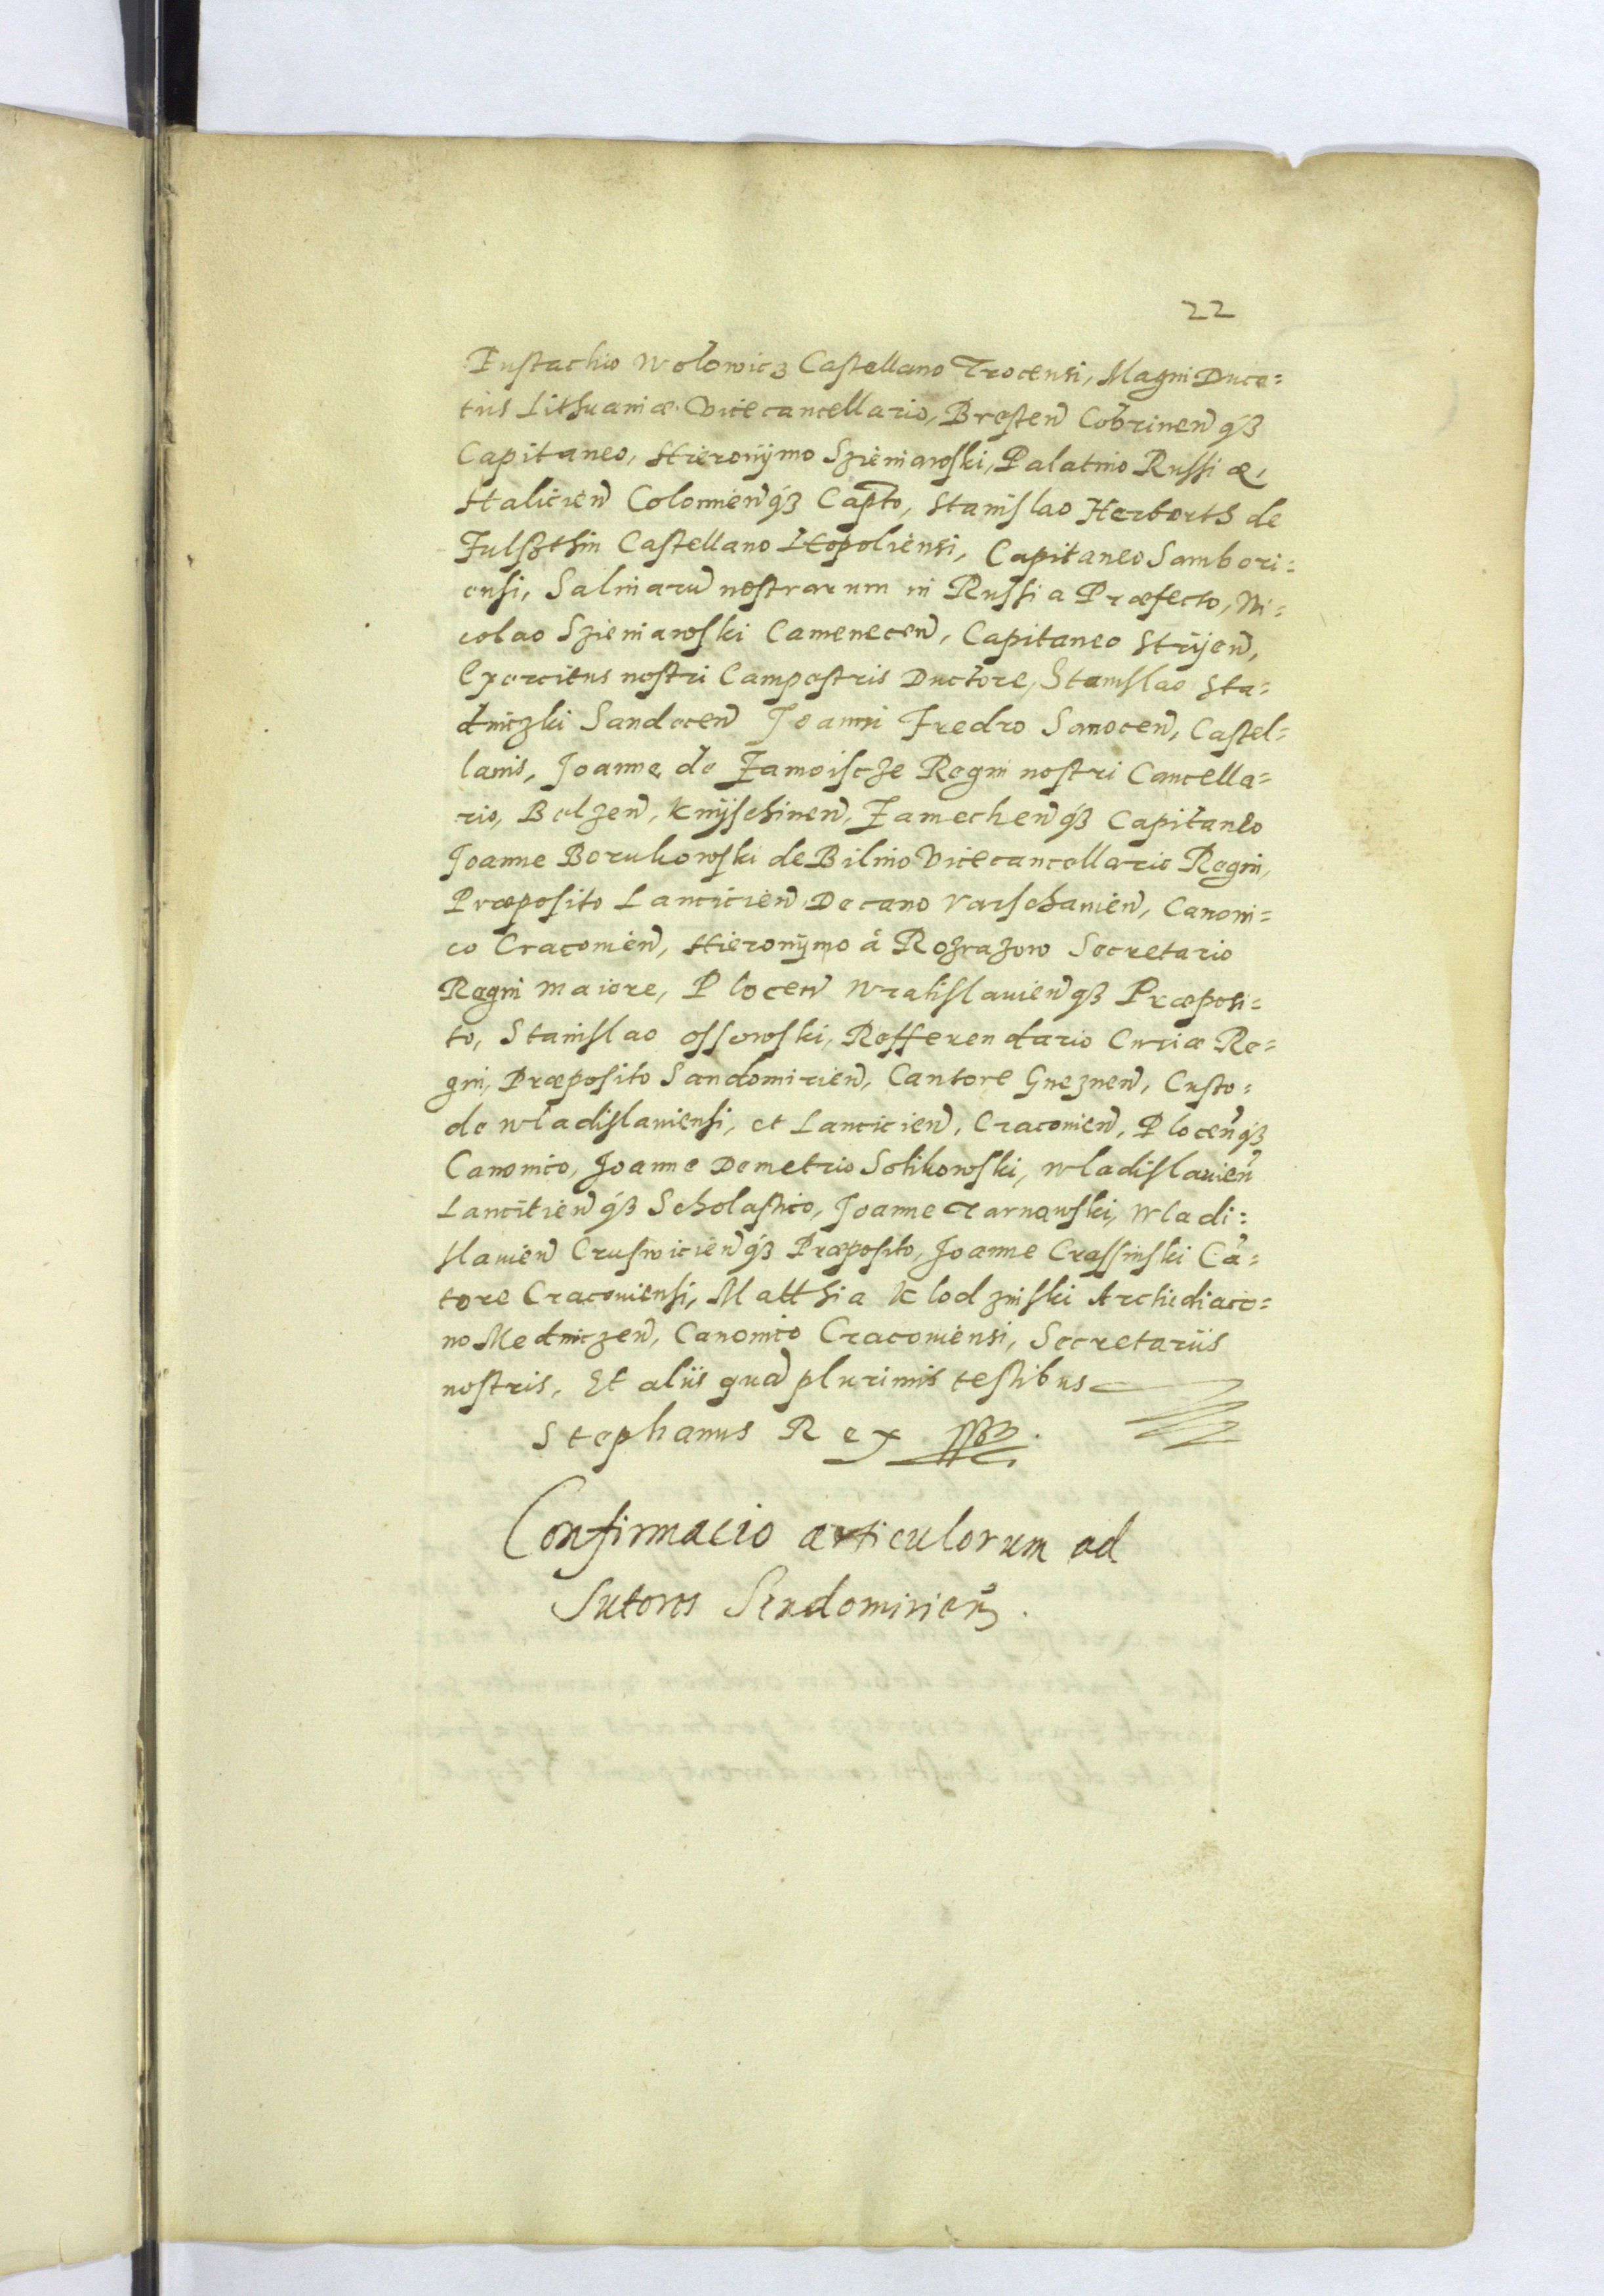 22
Eustachio Wolowicz Castellano Trocensi, Magni Duca=
tus Lithuaniæ Vicecancellario, Bresten̄ Cobrinen̄ qȝ
Capitaneo, Hieronÿmo Szieniawski, Palatino Russiæ,
Halicien̄ Colomien̄qȝ Capto, Stanislao Herborth de
Fulsthin Castellano Leopoliensi, Capitaneo Sambori=
ensi, Salinarū nostrarum in Russia Præfecto, Ni=
colao Szieniawski Camenecen̄, Capitaneo Strÿen̄,
Exercitus nostri Campestris Ductore, Stanislao Sta=
dniczki Sandecen̄ Joanni Fredro Sanocen̄, Castel=
lanis, Joanne de Zamoiscze Regni nostri Cancella=
rio, Belzen̄, Knÿschinen̄, Zamechen̄qȝ Capitaneo
Joanne Borukowski de Bilino Vicecancellario Regni,
Præposito Lancicien̄ Decano Varschauien̄, Canoni=
co Cracouien̄, Hieronÿmo á Rozrazow Secretario
Regni maiore, Plocen̄ Wratislauien̄qȝ Præposi=
to, Stanislao Ossowski, Refferendario Curiæ Re=
gni, Præposito Sandomirien̄, Cantore Gneznen̄, Custo=
de Wladislauiensi, et Lancicien̄, Cracouien̄, Plocen̄qȝ
Canonico, Joanne Demetrio Solikowski, Wladislauien̄
Lancitien̄qȝ Scholastico, Joanne Tarnowski, Wladi=
slauien̄ Cruswicien̄qȝ Præposito, Joanne Crassinski Cā=
tore Cracouiensi, Matthia Klodzinski Archidiaco=
no Medniczen̄, Canonico Cracouiensi, Secretariis
nostris, Et aliis quā plurimis testibus
Stephanus Rex
Confirmacio articulorum ad
Sutores Sendomirien̄.